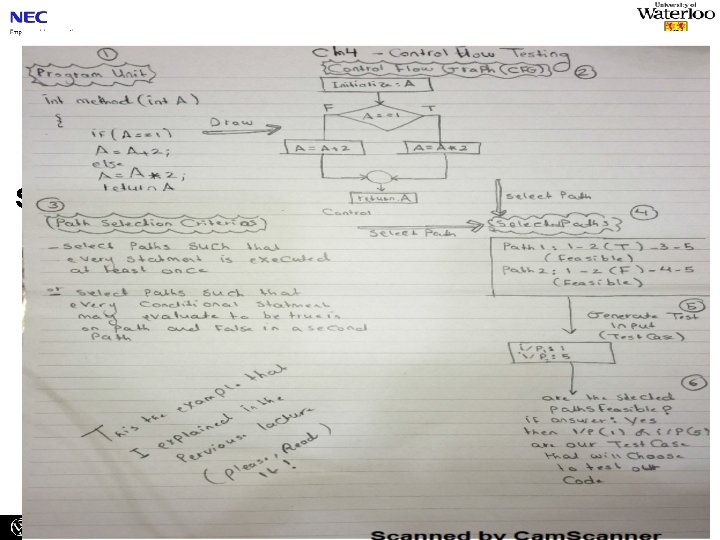 NEC
University of
Waterloo
Ch4 - Control Flow Testing
1
Program Unit
int method (int A)
{
if (A==1)
A = A+2;
else
A = A*2;
return A
Draw
Control Flow Graph (CFG)
2
Initialize: A
F
T
A==1
A=A+2
A=A*2
return A
Control
Select Path
select Path
3
Path Selection Criterias
- Select Paths such that
every statment is executed
at least once
or select Paths such that
every Conditional statment
may evaluate to be true is
on Path and False in a second
Path
4
Selected Paths
Path1: 1-2(T)-3-5
(Feasible)
Path2: 1-2(F)-4-5
(Feasible)
5
Generate Test
input
(Test Case)
I/P: 1
I/P: 5
6
are the slected
paths feasible?
if answer: Yes
then I/P(1) or I/P(5)
are our Test Case
that will choose
to test our
Code
This the example that
I explained in the
Pervious lacture
(please, Read
it!)
Scanned by CamScanner